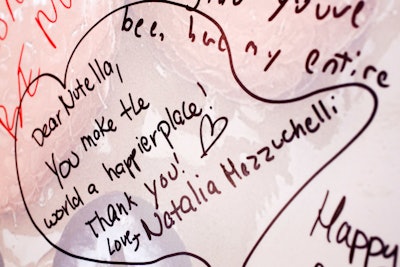 you've
been but my entire
Dear Nutella,
You make the
world a happier place!
Thank you!
Love,
Natalia Mezzuchelli
Happy